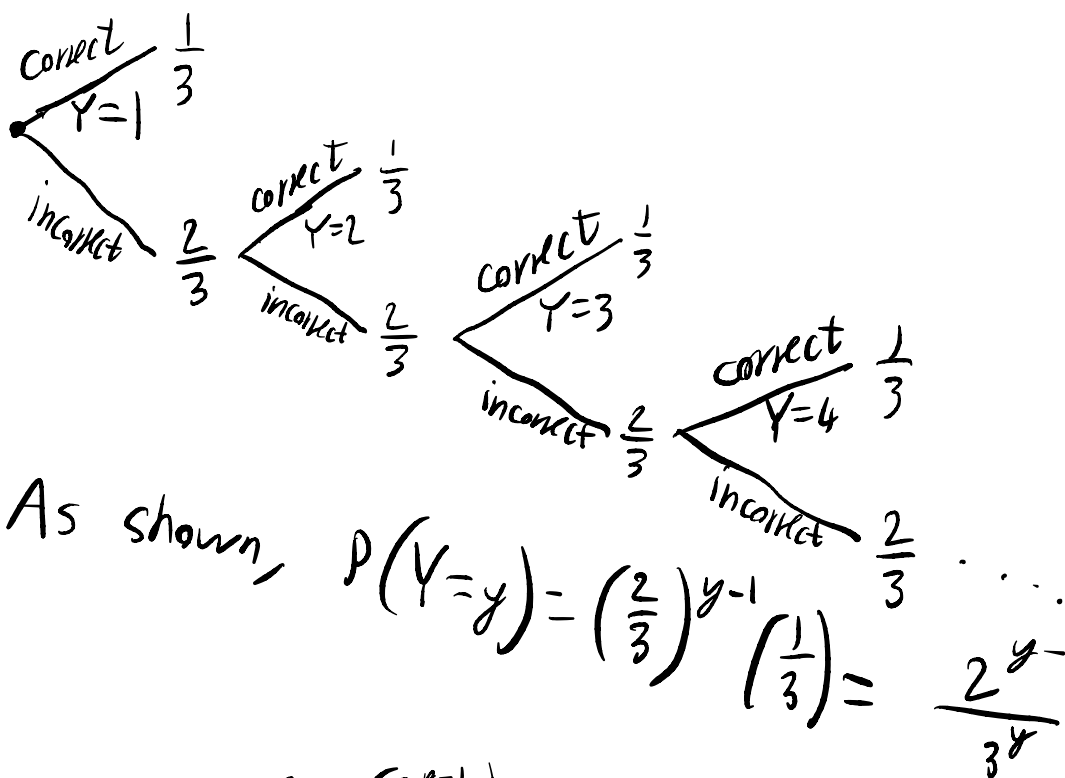 correct 1/3
Y=1
incorrect 2/3
correct 1/3
Y=2
incorrect 2/3
correct 1/3
Y=3
incorrect 2/3
correct 1/3
Y=4
incorrect 2/3 .....
As shown, P(Y=y) = (2/3)^{y-1} (1/3) = 2^{y-}/3^y